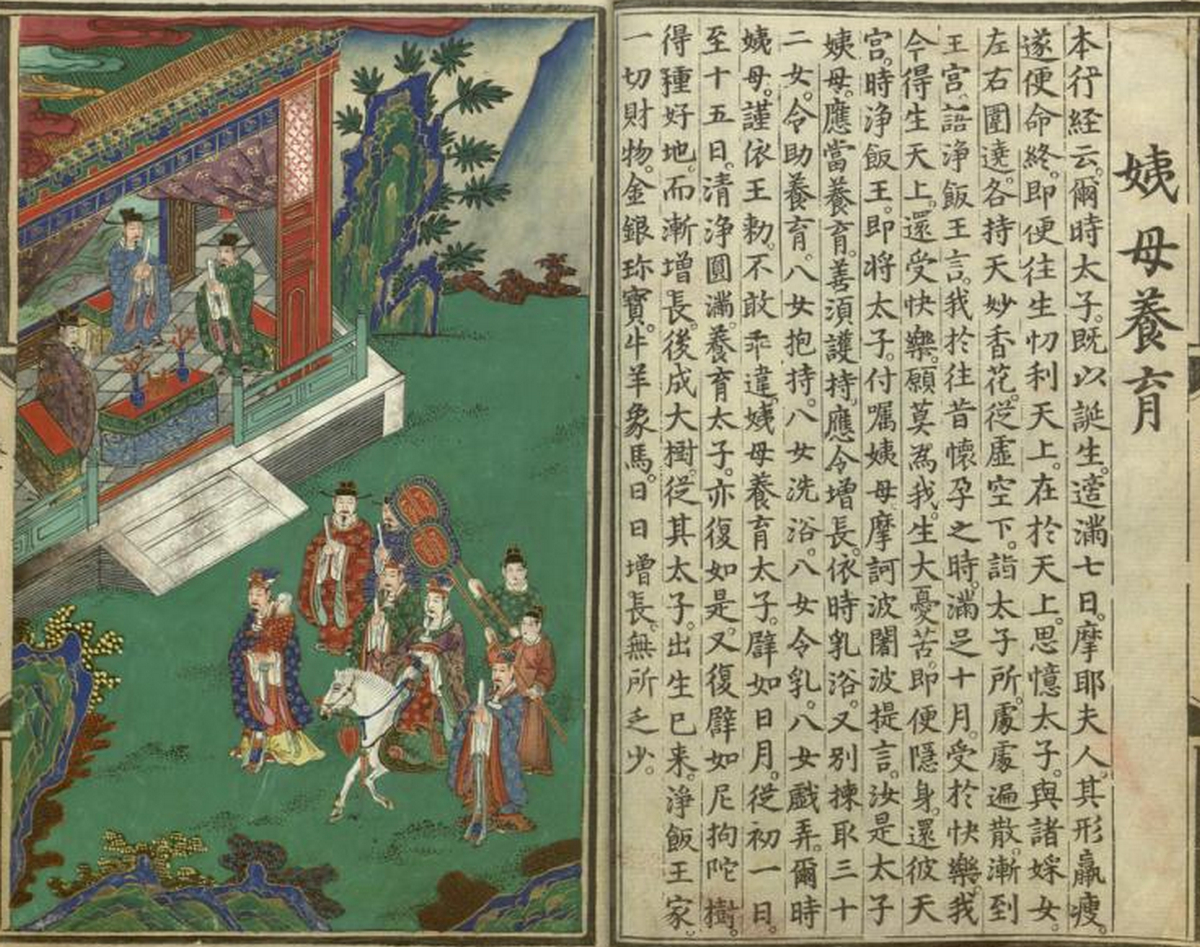 姨母養育
本行経云。爾時太子。既以誕生。適滿七日。摩耶夫人。其形羸瘦。
遂便命終。即便往生忉利天上。在於天上。思憶太子。與諸婇女。
左右圍遶。各持天妙香花。從虛空下。詣太子所。處處遍散。漸到
王宮。語淨飯王言。我於往昔懷孕之時。滿足十月。受於快樂。我
今得生天上。還受快樂。願莫為我。生大憂苦。即便隱身。還彼天
宮。時淨飯王。即將太子。付囑姨母摩訶波闍波提言。汝是太子
姨母。應當養育。善須護持。應令增長。依時乳浴。又別揀取三十
二女。令助養育。八女抱持。八女洗浴。八女令乳。八女戲弄。爾時
姨母。謹依王勑。不敢乖違。姨母養育太子。譬如日月。從初一日。
至十五日。清淨圓滿。養育太子。亦復如是。又復譬如尼拘陀樹。
得種好地。而漸增長。後成大樹。從其太子。出生已来。淨飯王家。
一切財物。金銀珎寶。牛羊象馬。日日增長。無所乏少。